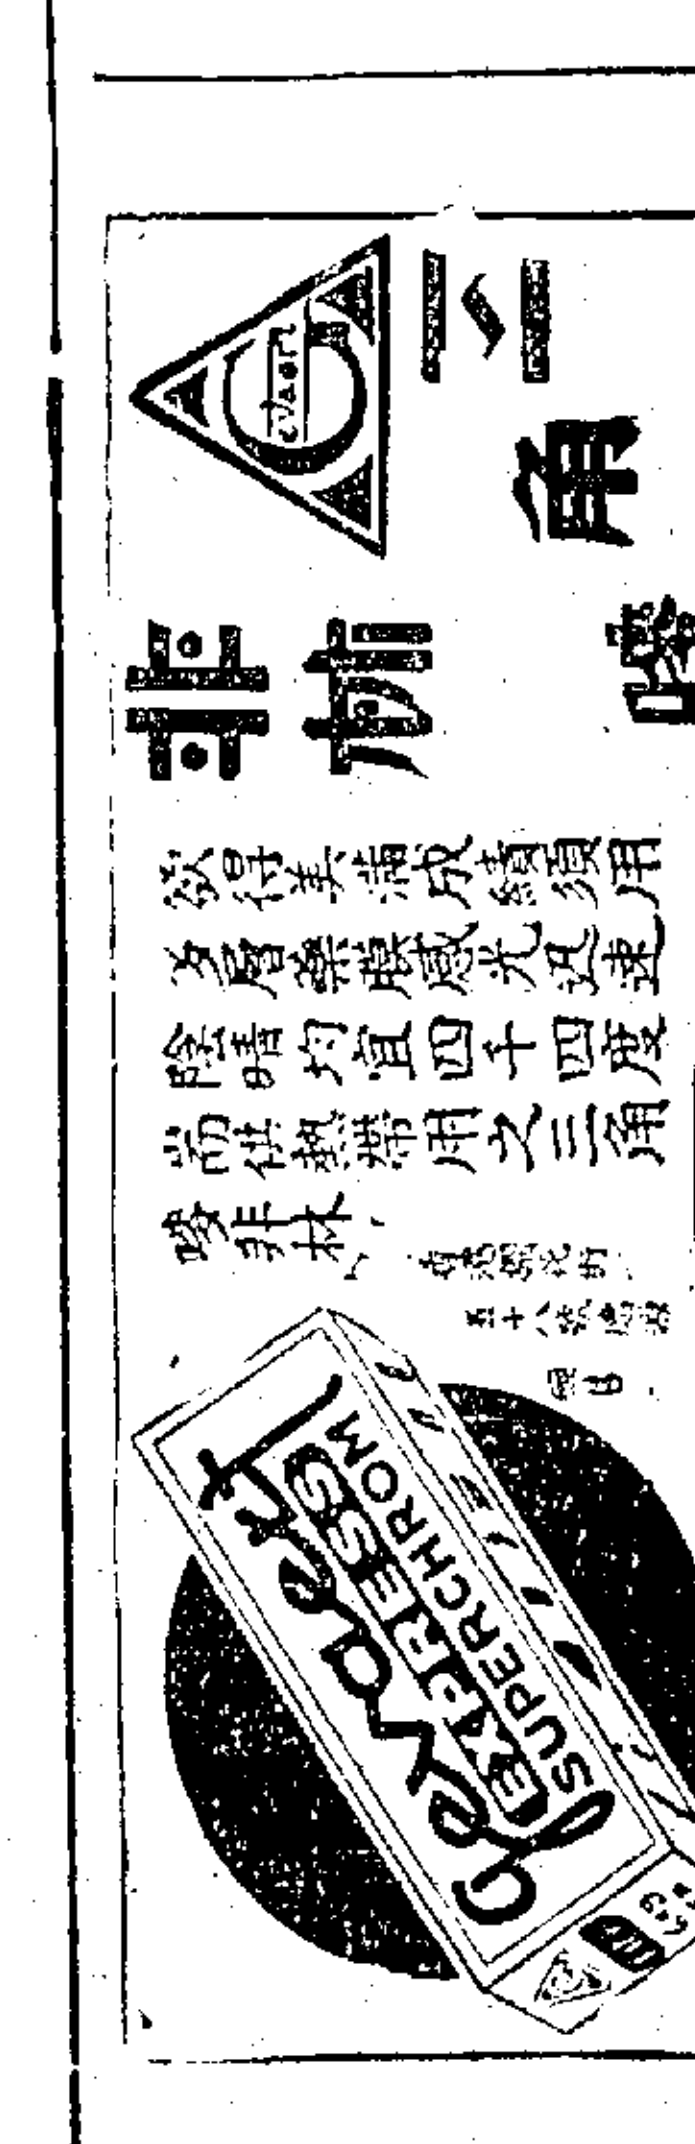 Gevaert
三角嘜
非林
欲得美滿成績須用
多層藥膜感光迅速
陰晴均宜四十四度
尚供熱帶用之三角
嘜非林
Gevaert
EXPRESS
SUPERCHROM